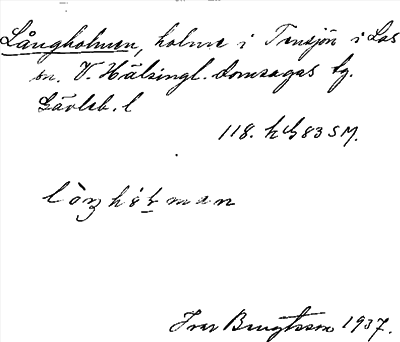 Långholmen, holme i Tensjön i Los
sn. V. Hälsingl. domsagas tg.
Gävleb. l
118. h 83 SM.
Ivar Bengtsson 1937.